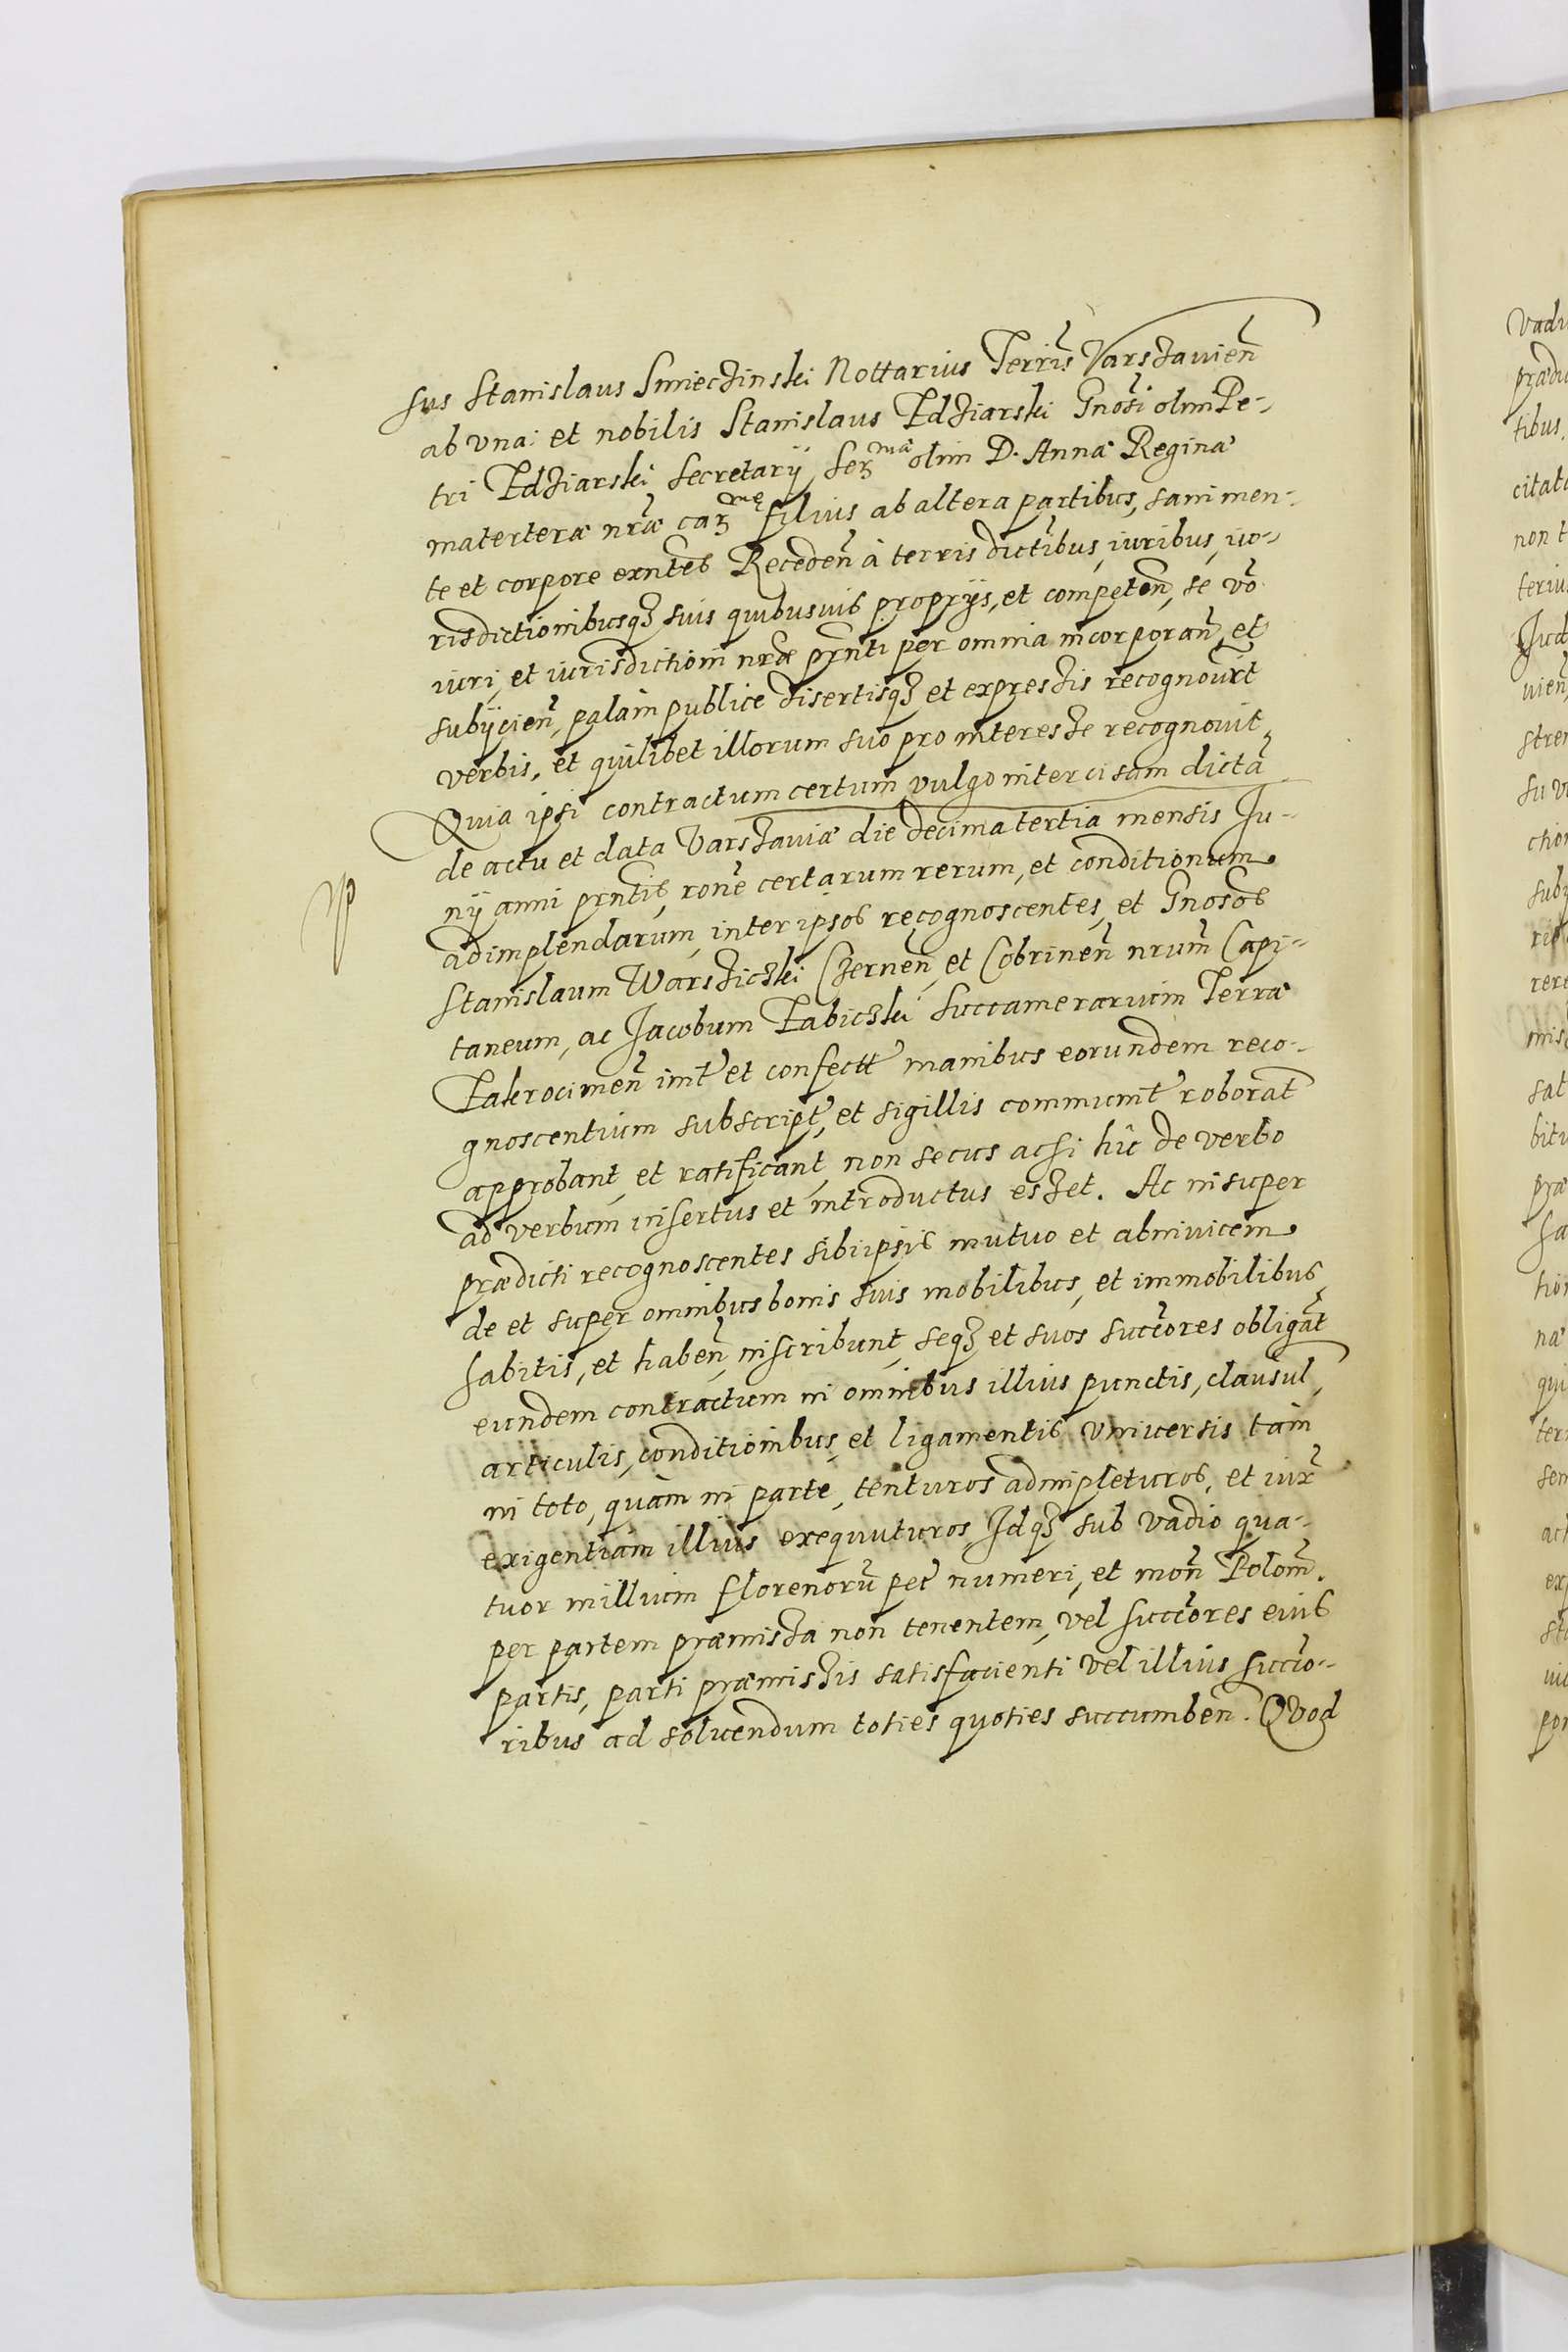 sus Stanislaus Smieczinski Nottarius Terris̃ Varszauieñ
ab vna: et nobilis Stanislaus Zdziarski Gnosi olim Pe-
tri Zdziarski Secretarij Ser^mæ olim D. Annæ Reginæ
materteræ nr̃æ car^mę filius ab altera partibus, sani men-
te et corpore exñtes Recedeñ à terris dictibus, iuribus, iu-
risdictionibusq₃ suis quibusuis proprijs, et competeñ, se võ
iuri, et iurisdictioni nr̃æ pr̃nti per omnia incorporañ, et
subijcieñ, palàm publice disertisq₃ et expressis recognour̃t
verbis, et quilibet illorum suo pro interesse recognouit,
Quia ipsi contractum certum vulgo intercisam dictã
de actu et data Varszauiæ die decima tertia mensis Ju-
nij anni prñtis, rone certarum rerum, et conditionum
adimplendarum, inter ipsos recognoscentes, et Gnosos
Stanislaum Warszicki Czerneñ, et Cobrineñ nrum̃ Capi-
taneum, ac Jacobum Łabiczki Succamerarium Terræ
Zakrocimeñ imt et confectt manibus eorundem reco-
gnoscentium subscript, et sigillis communit roborat
approbant, et ratificant, non secus acsi hîc de verbo
ad verbum insertus et introductus esset. Ac insuper
prædicti recognoscentes sibiipsis mutuo et abinuicem
de et super omnibus bonis suis mobilibus, et immobilibus
habitis, et habeñ, inscribunt, seq₃ et suos succ̃ores obligãt
eundem contractum in omnibus illius punctis, clausul,
articulis, conditionibus, et ligamentis vniuersis tàm
in toto, quàm in parte, tenturos adimpleturos, et iux̃
exigentiam illius exequuturos, Idq₃ sub vadio qua-
tuor millium florenorũ pec̃ numeri, et moñ Poloñ.
per partem præmissa non tenentem, vel succ̃ores eius
partis, parti præmissis satisfacienti vel illius succo-
ribus ad soluendum toties quoties succumbeñ. Quod
Vadi
prædi
tibus,
citato
non t
teriu
Jud
uieñ
stren
su v
ction
subi
rere
mis
sat
bitu
præ
ha
tion
næ
qui
ter
sem
act
exp
por